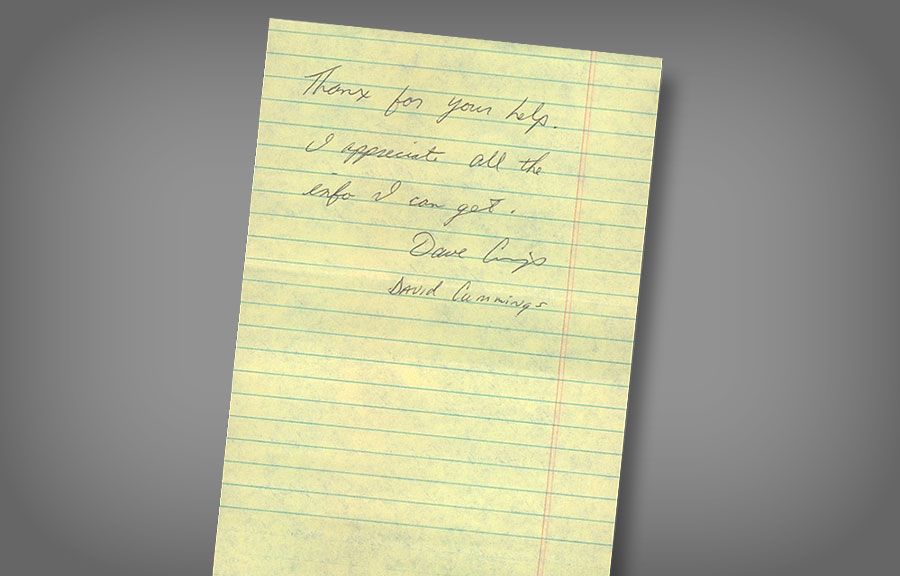 Thanx for your help.
I appreciate all the
info I can get.
Dave Cummings
David Cummings